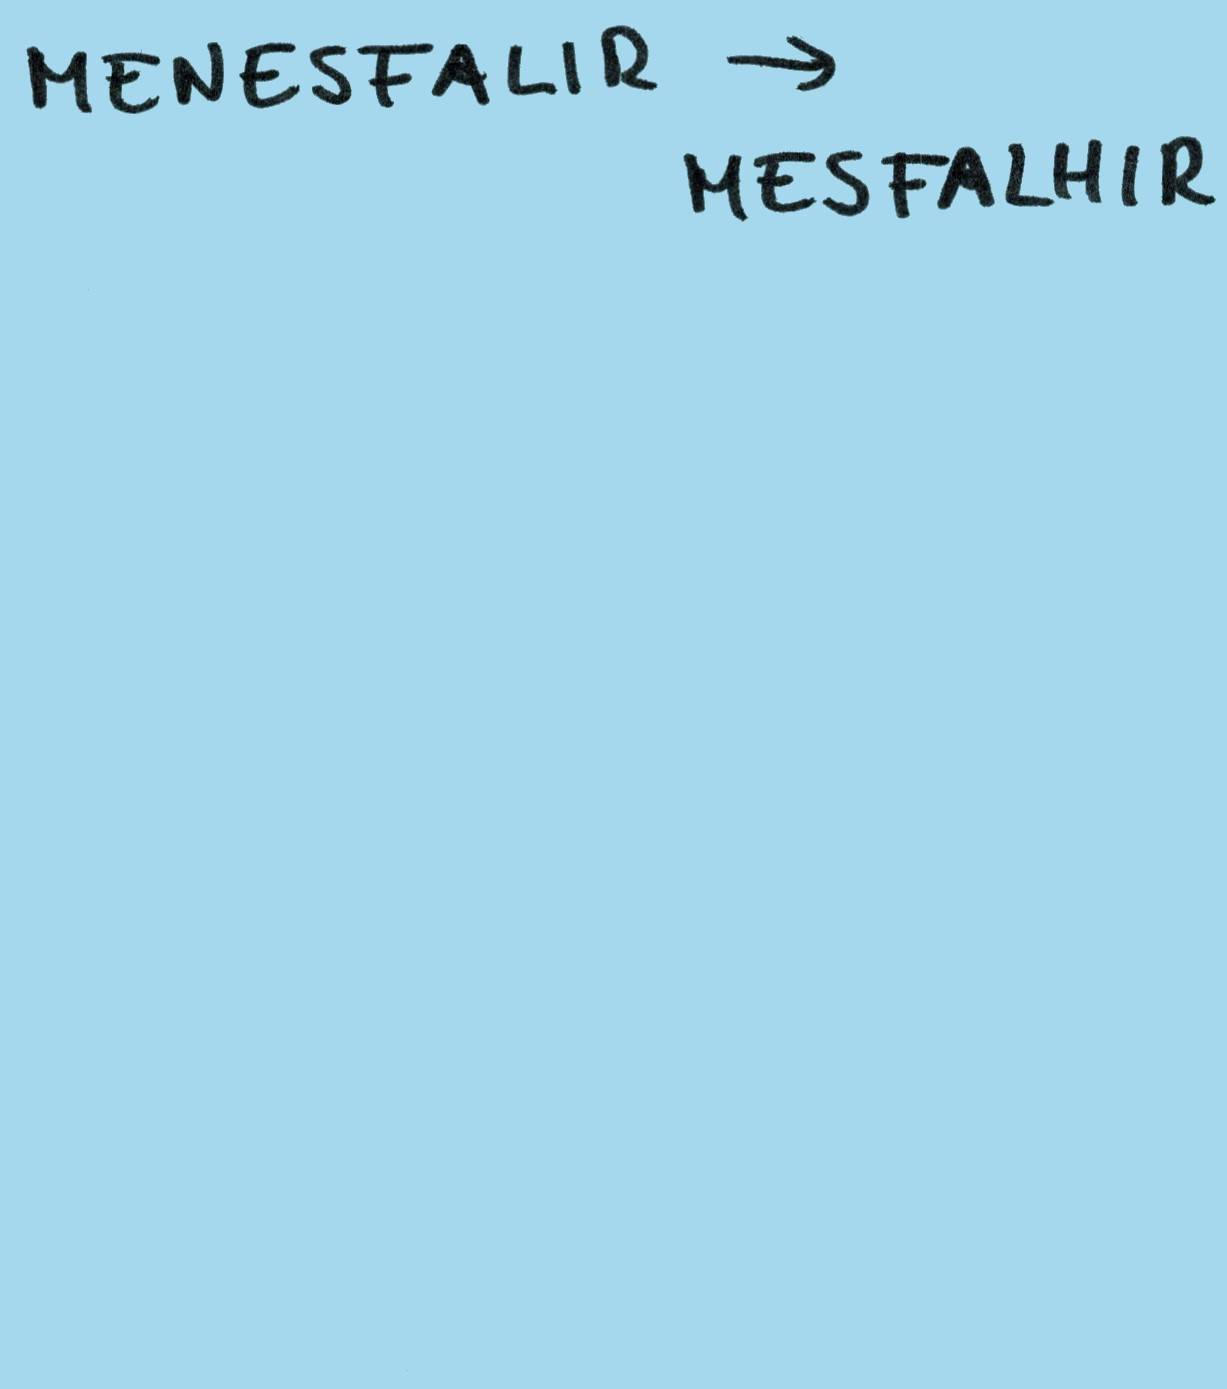 MENESFALIR →
MESFALHIR